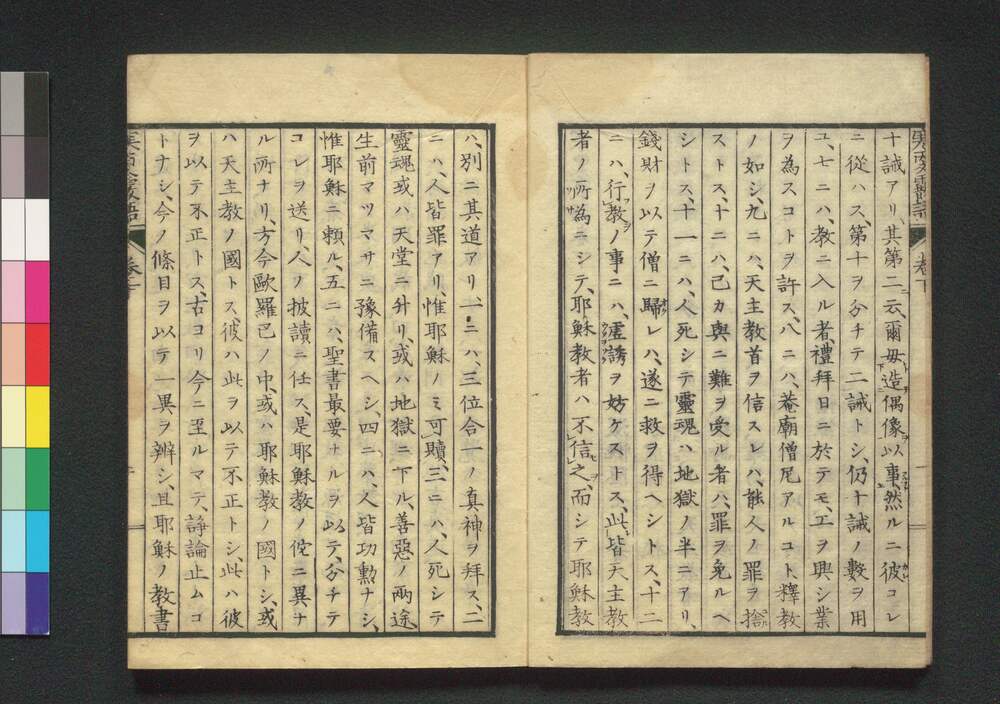 十誡アリ、其第二云、爾毋造偶像以事、然ルニ彼コレ
ニ從ハス、第十ヲ分チテ二誡トシ、仍十誡ノ數ヲ用
ユ、七ニハ、教ニ入ル者、禮拜日ニ於テモ、工ヲ興シ業
ヲ為スコトヲ許ス、八ニハ、菴廟僧尼アルコト、釋教
ノ如シ、九ニハ、天主教首ヲ信スレハ、能人ノ罪ヲ捨
ストス、十ニハ、己カ與ニ難ヲ受ル者ハ、罪ヲ免ルヘ
シトス、十一ニハ、人死シテ靈魂ハ地獄ノ半ニアリ、
錢財ヲ以テ僧ニ歸レハ、遂ニ救ヲ得ヘシトス、十二
ニハ、行教ノ事ニハ、虚誘ヲ妨ケストス、此皆天主教
者ノ所為ニシテ、耶穌教者ハ不信之、而シテ耶穌教
ハ、別ニ其道アリ、一ニハ、三位合一ノ真神ヲ拜ス、二
ニハ、人皆罪アリ、惟耶穌ノミ可贖、三ニハ、人死シテ
靈魂或ハ天堂ニ升リ、或ハ地獄ニ下ル、善惡ノ兩途
生前マツマサニ豫備スヘシ、四ニハ、人皆功勲ナシ、
惟耶穌ニ頼ル、五ニハ、聖書最要ナルヲ以テ、分チテ
コレヲ送リ、人ノ披讀ニ任ス、是耶穌教ノ侘ニ異ナ
ル所ナリ、方今歐羅巴ノ中、或ハ耶穌教ノ國トシ、或
ハ天主教ノ國トス、彼ハ此ヲ以テ不正トシ、此ハ彼
ヲ以テ不正トス、古ヨリ今ニ至ルマテ、諍論止ムコ
トナシ、今ノ條目ヲ以テ一異ヲ辨シ、且耶穌ノ教書